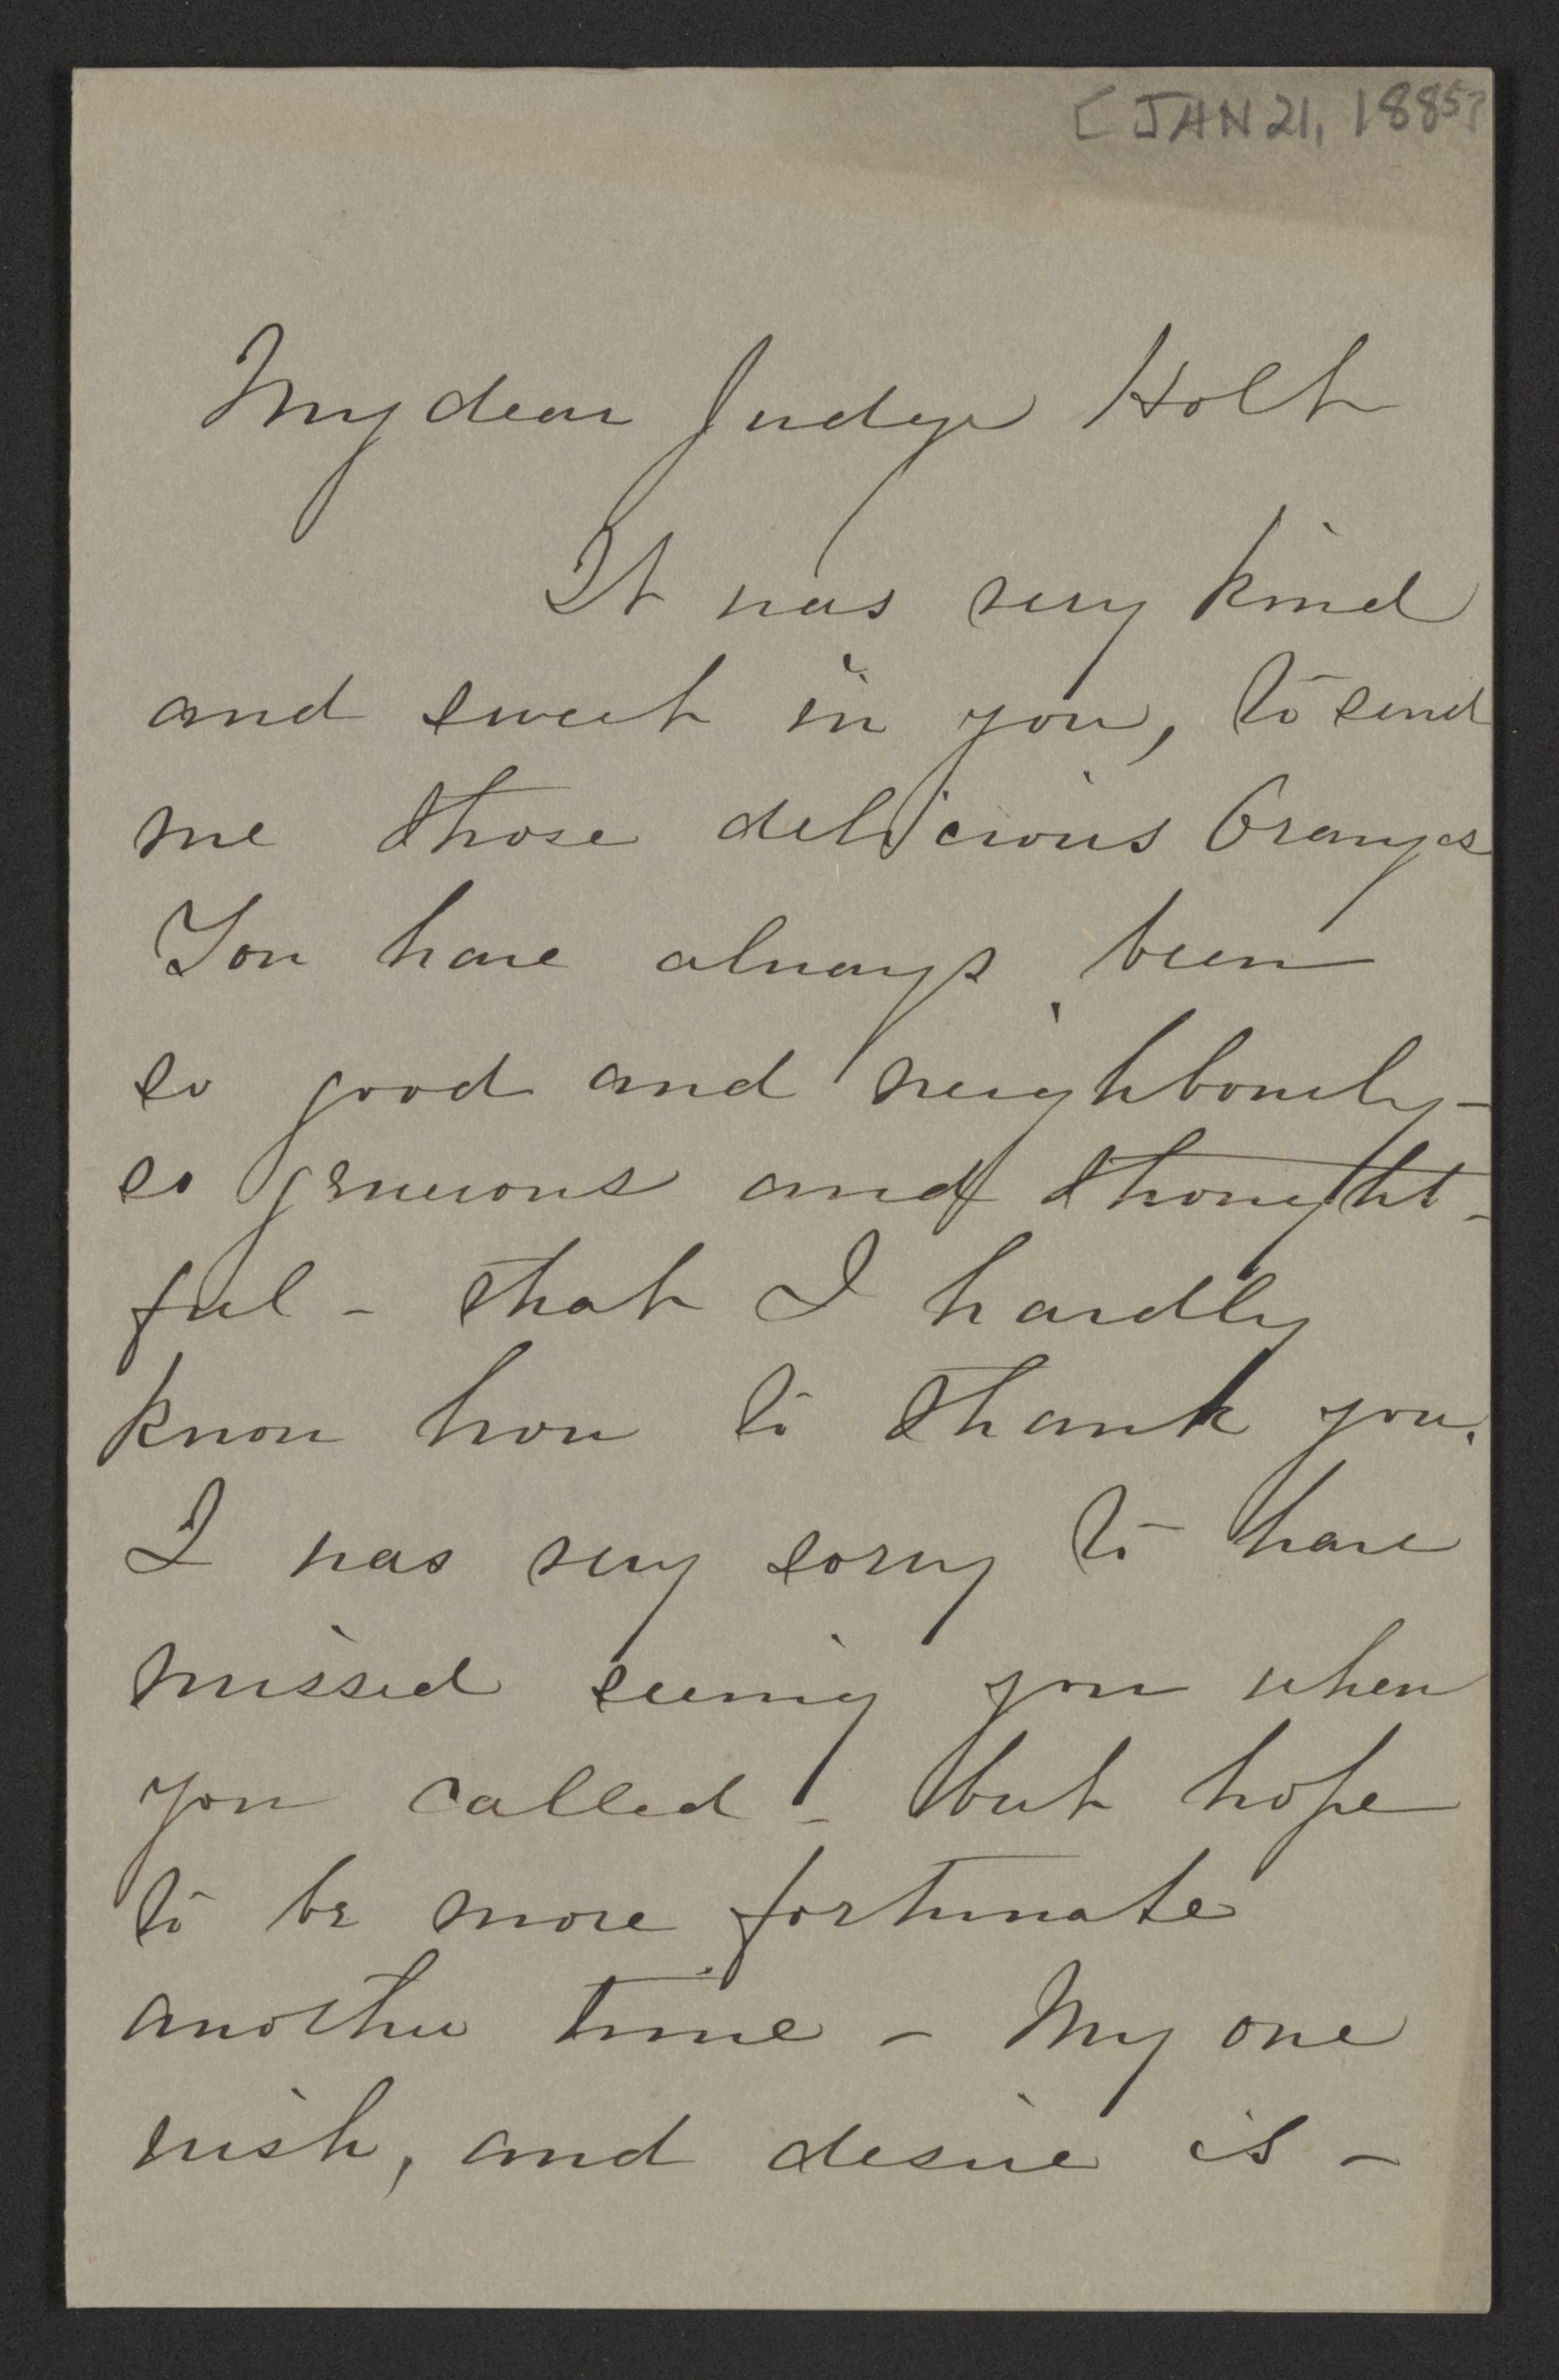 [JAN 21, 1885?
My dear Judge Holt
It was very kind
and sweet in you, to send
me those delicious Oranges
You have always been
so good and neighbourly -
so generous and thought -
ful - that I hardly
know how to thank you.
I was very sorry to have
missed seeing you when
you called - but hope
to be more fortunate
another time - My one
wish, and desire is -